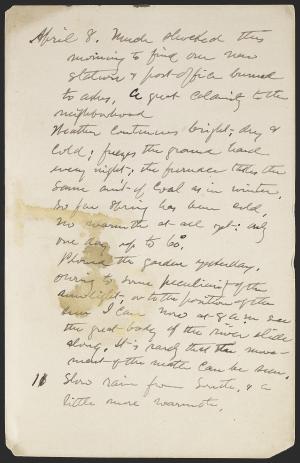 April 8. Much shocked this
morning to find our new
station & post-office burned
to ashes. A great calamity to the
neighborhood
Weather continues bright, dry &
cold; freezes the ground hard
every night; the furnace takes the
same am't of coal as in winter.
So far Spring has been cold,
no warmth at all yet; only
one day up to 60°.
Plowed the garden yesterday.
Owing to some peculiarity of the
sunlight, or to the position of the
sun I can now at 8 a.m. see
the great body of the river slide
along. It is rarely that the move-
ment of the water can be seen.
11 Slow rain from South, & a
little more warmth.